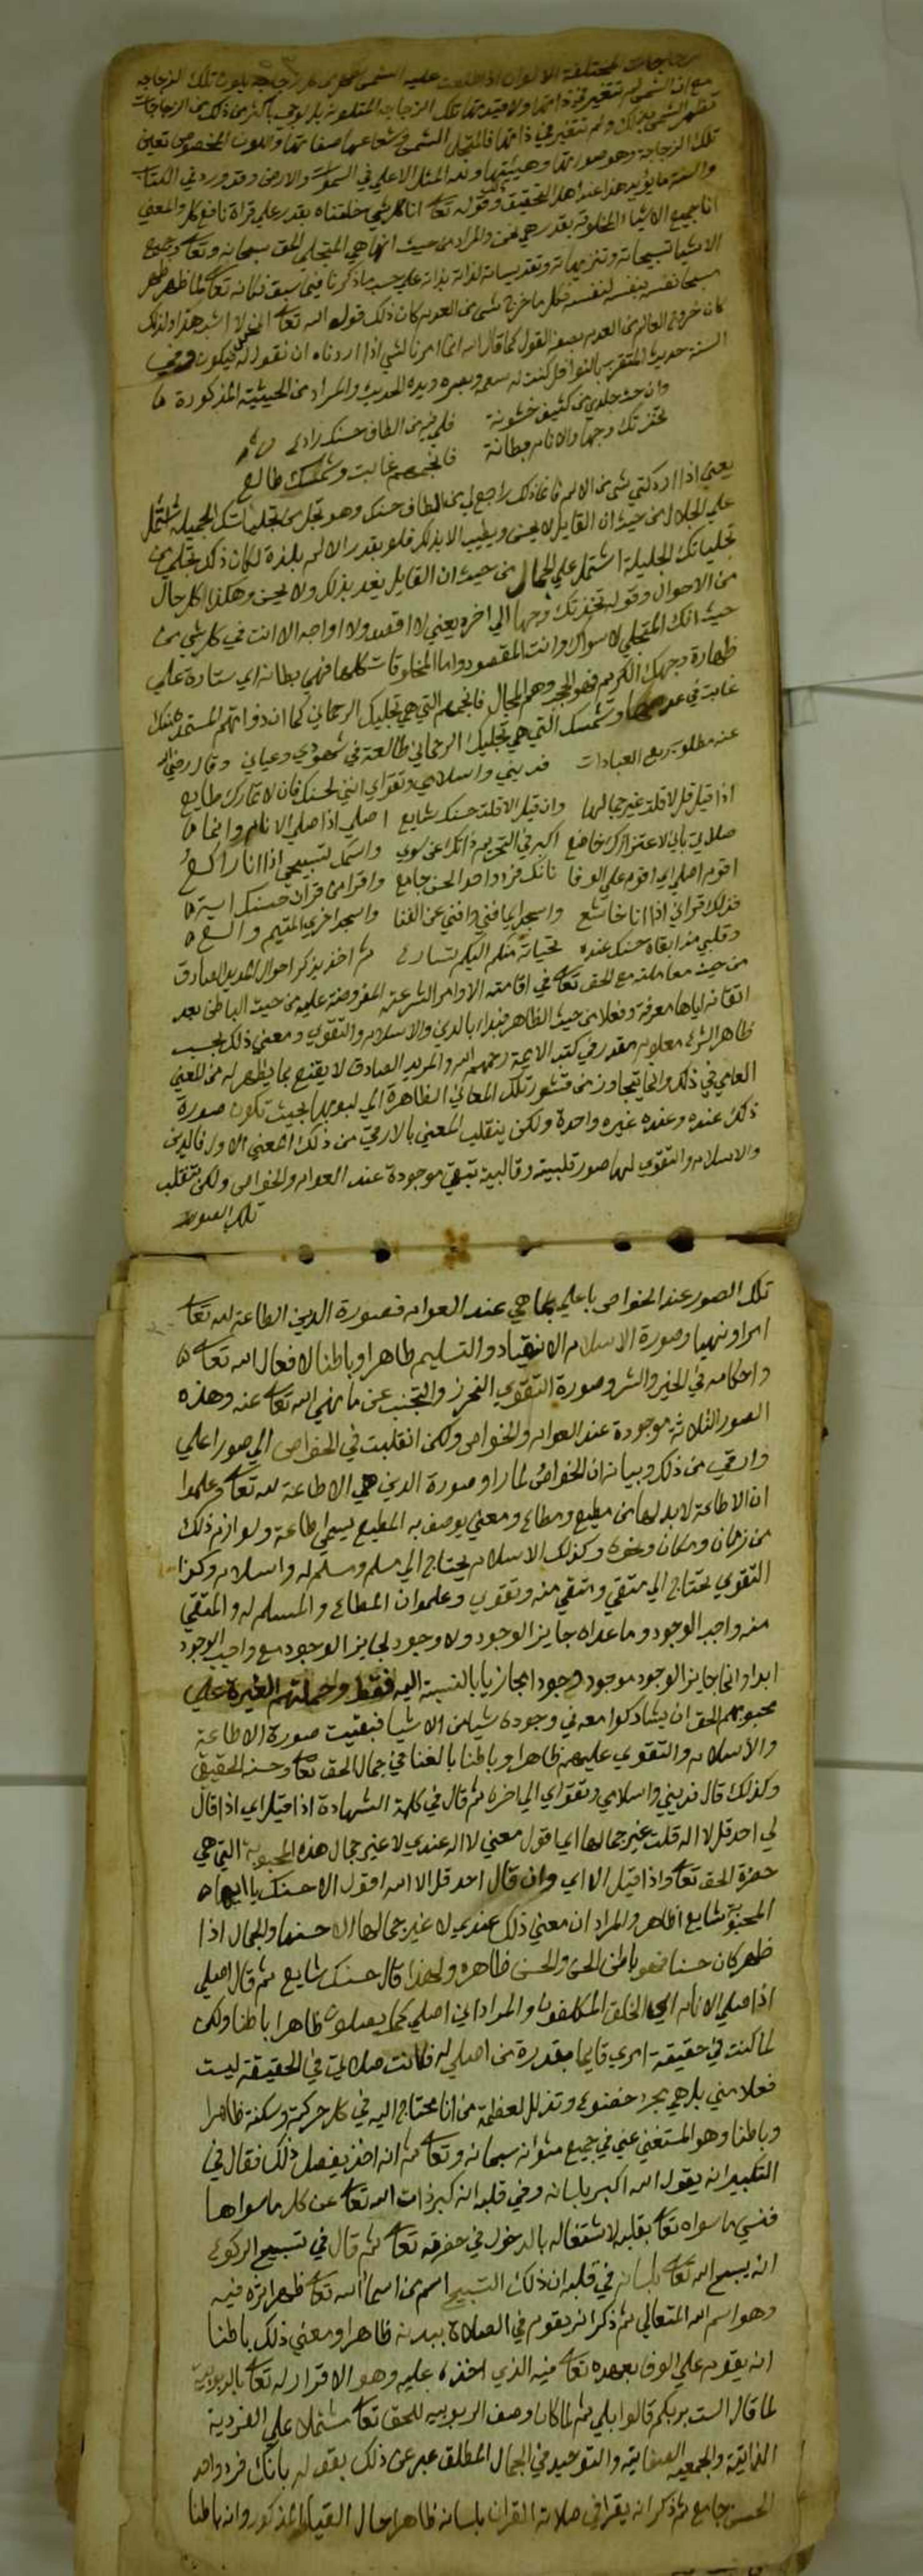 زجاجات المختلفة الالوان اذا طلعت عليه الشمس كل زجاجة بلون تلك الزجاجة
مع ان الشمس لم تتغير في ذاتها ولا قيدتها تلك الزجاجة المتلونة
تظهر الشمس بذلك ولم تتغير في ذاتها فالمتجلي الشمس وشعاعها صفاتها واللون المخصوص تعين
تلك الزجاجة وهو صورتها وهيئتها ولله المثل الاعلي في السموات والارض وقد ورد في الكتاب
والسنة ما يؤيد هذا عند اهل التحقيق وقوله تعا انا كل شي خلقناه بقدر علي قراة نافع كل والمعني
انا جميع الاشياء المخلوقة بقدر هي نحن والمراد من حيث انها هي المتجلي الحق سبحانه وتعا وجميع
الاشيا تسبيحاته وتنزيهاته وتقديساته لذاته بذاته علي حسب ما ذكرنا فيما سبق فانه تعا لما ظهر ظهر
مسبحا نفسه بنفسه لنفسه فكل ما خرج شي من العدم كان ذلك قوله الله تعا
كان خروج العالم من العدم بصفة القول كما قال الله انما امرنا لشي اذا اردناه ان نقول له كن فيكون وفي
السنة حديث المتقرب بالنوافل كنت له سمعه وبصره ويده الحديث والمراد من الحيثية المذكورة
وان حث جلدي من كثيف خشونة فلي فيه من الطاف حسنك رادع
تخذتك وجها والانام بطانة فانجمهم غابت وشمسك طالع
يعني اذا ادركتني شي من الالم فانما ذلك راجع لي من الطاف حسنك وهو تجل من تجلياتك الجميلة اشتمل
علي الجلال من حيث ان القايل لا يحس ويطيب الا بذلك فلو بقدر الالم بلذة لكان ذلك تجلي من
تجلياتك الجليلة اشتمل علي الجمال من حيث ان القايل يغد بذلك ولا يحس وهكذا كل حال
من الاحوال وقوله تخذتك وجها الي اخره يعني لا اقصد ولا اواجه الا انت في كل شي من
حيث انك المتجلي لا سواك وانت المقصود واما المخلوقات كلها فهي بطانة اي ستارة علي
ظهارة وجهك الكريم فهو البحر وهم الجبال فانجمهم التي هي تجليك الرحماني كما ان ذواتهم المستمد منك
غابت في عدمها وشمسك التي هي تجليك الرحماني طالعة في شهودي وعياني وقال رضي الله
عنه مطلوبه بربع العبادات فديني واسلامي وتقواي انني لحسنك فان لا لامرك طايع
اذا قيل قل لا قلت غير جمالها وان قيل الا قلت حسنك شايع اصلي اذا صلي الانام وانما
صلاتي باني لاعتزازك خاضع اكبر في التحريم ذاتك عن سوي واسمك تسبيحي اذا انا راكع
اقوم اصلي اي اقوم علي الوفا بانك فرد واحد الحسن جامع واقرا من قران حسنك اية
فذلك قراني اذا انا خاشع واسجد اي افني وافني عن الفنا واسجد اخري المتيم والع
وقلبي مذ ابقاه حسنك عنده تحياته منكم اليكم تسارع ثم اخذ يذكر احوال المريد الصادق
من حيث معاملته مع الحق تعا في اقامته الاوامر الشرعية المفروضة عليه من حيث الباطن بعد
اتقانه اياها معرفة وفعلا من حيث الظاهر فبدا بالدين والاسلام والتقوي ومعني ذلك بحسب
ظاهر الشرع معلوم مقدر في كتب الايمة رحمهم الله والمريد الصادق لا يقنع بما يظهر له من المعني
العامي في ذلك وانما يتجاوز من قشور تلك المعاني الظاهرة الي لبوبها بحيث تكون صورة
ذلك عنده وعند غيره واحدة ولكن ينقلب المعني بالارقي من ذلك المعني الاول فالدين
والاسلام والتقوي لها صور قلبية وقالبية تبقي موجودة عند العوام والخواص ولكن تنقلب
تلك الصور
تلك الصور عند الخواص باعلي مما هي عند العوام فصورة الدين الطاعة لله تعا
امرا ونهيا وصورة الاسلام الانقياد والتسليم ظاهرا وباطنا لافعال الله تعا
واحكامه في الخير والشر وصورة التقوي التحرز والتجنب عن ما نهي الله تعا عنه وهذه
الصور الثلاثة موجودة عند العوام والخواص ولكن انقلبت في الخواص الي صور اعلي
وارقي من ذلك وبيانه ان الخواص لما راوا صورة الدين هي الاطاعة لله تعا وعلموا
ان الاطاعة لابد لها من مطيع ومطاع ومعني يوصف به المطيع يسمي اطاعة ولوازم ذلك
من زمان ومكان ونحوه وكذلك الاسلام يحتاج الي مسلم ومسلم له واسلام وكذا
التقوي يحتاج الي متقي ومتقي منه وتقوي وعلموا ان المطاع والمسلم له والمتقي
منه واجب الوجود وما عداه جايز الوجود ولا وجود لجايز الوجود مع واجب الوجود
ابدا وانما جايز الوجود موجود وجودا مجازيا بالنسبة اليه فقط وحملتهم الغيرة علي
محبوبهم الحق ان يشاركوا معه في وجوده شيا من الاشيا فبقيت صورة الاطاعة
والاسلام والتقوي عليهم ظاهرا وباطنا بالفنا في جمال الحق تعا وحسنه الحقيقي
وكذلك قال فديني واسلامي وتقواي الي اخره ثم قال في كلمة الشهادة اذا قيل اي اذا قال
لي احد قل لا اله قلت غير جمالها اي اقول معني لا اله عندي لا غير جمال هذه المحبوبة التي هي
حضرة الحق تعا واذا قيل الا اي وان قال احد قل الا الله اقول الا حسنك يا ايها
المحبوبة شايع اظاهر والمراد ان معني ذلك عندي لا غير جمالها الا حسنها والجمال اذا
ظهر كان حسنا فهو باطن الحسن والحسن ظاهره ولهذا قال حسنك شايع ثم قال اصلي
اذا صلي الانام اي الخلق المكلفون والمراد اني اصلي كما يصلون ظاهرا باطنا ولكن
لما كنت في حقيقة امري قايما بقدرة من اصلي له فكانت صلاتي في الحقيقة ليست
فعلا مني بل هي مجرد خضوع وتذلل لعظمة من انا محتاج اليه في كل حركة وسكنة ظاهرا
وباطنا وهو المستغني عني في جميع شؤانه سبحانه وتعا ثم انه اخذ يفصل ذلك فقال في
التكبير انه يقول الله اكبر بلسانه وفي قلبه انه كبر ذات الله تعا عن كل ما سواها
فنسي ما سواه تعا بقلبه لاشتغاله بالدخول في حضرته تعا ثم قال في تسبيح الركوع
انه يسبح الله تعا بلسانه في قلبه ان ذلك التسبيح اسم من اسما الله تعا ظهر اثره فيه
وهو اسم الله المتعالي ثم ذكر انه يقوم في الصلاة ببدنه ظاهرا ومعني ذلك باطنا
انه يقوم علي الوفا بعهده تعا فيه الذي اخذه عليه وهو الاقرار له تعا بالربوبية
لما قال الست بربكم قالوا بلي ثم لما كان وصف الربوبيه للحق تعا مشتملا علي الفردية
الذاتية والجمعية الصفاتية والتوحيد في الجمال المطلق عبر عن ذلك بقوله بانك فرد واحد
الحسن جامع ثم ذكر انه يقرا في صلاته القران بلسانه ظاهرا حال القيام المذكور وانه باطنا